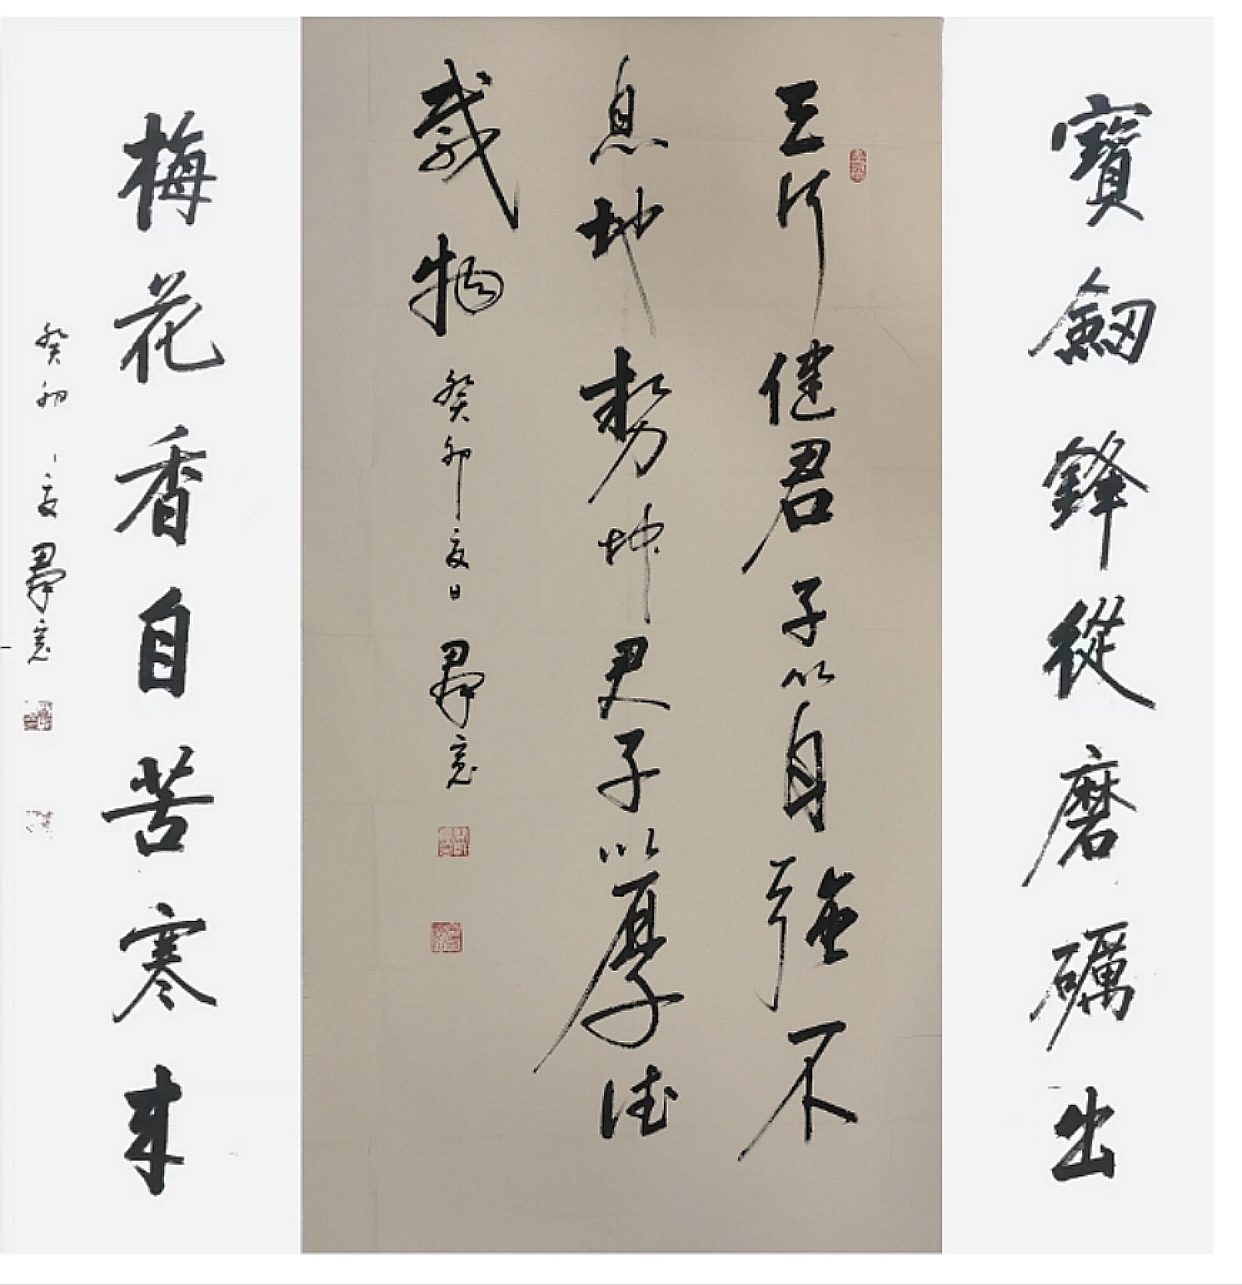 寶劔鋒從磨礪出
天行健君子以自强不
息地势坤君子以厚德
载物 癸卯夏日
梅花香自苦寒来
癸卯夏